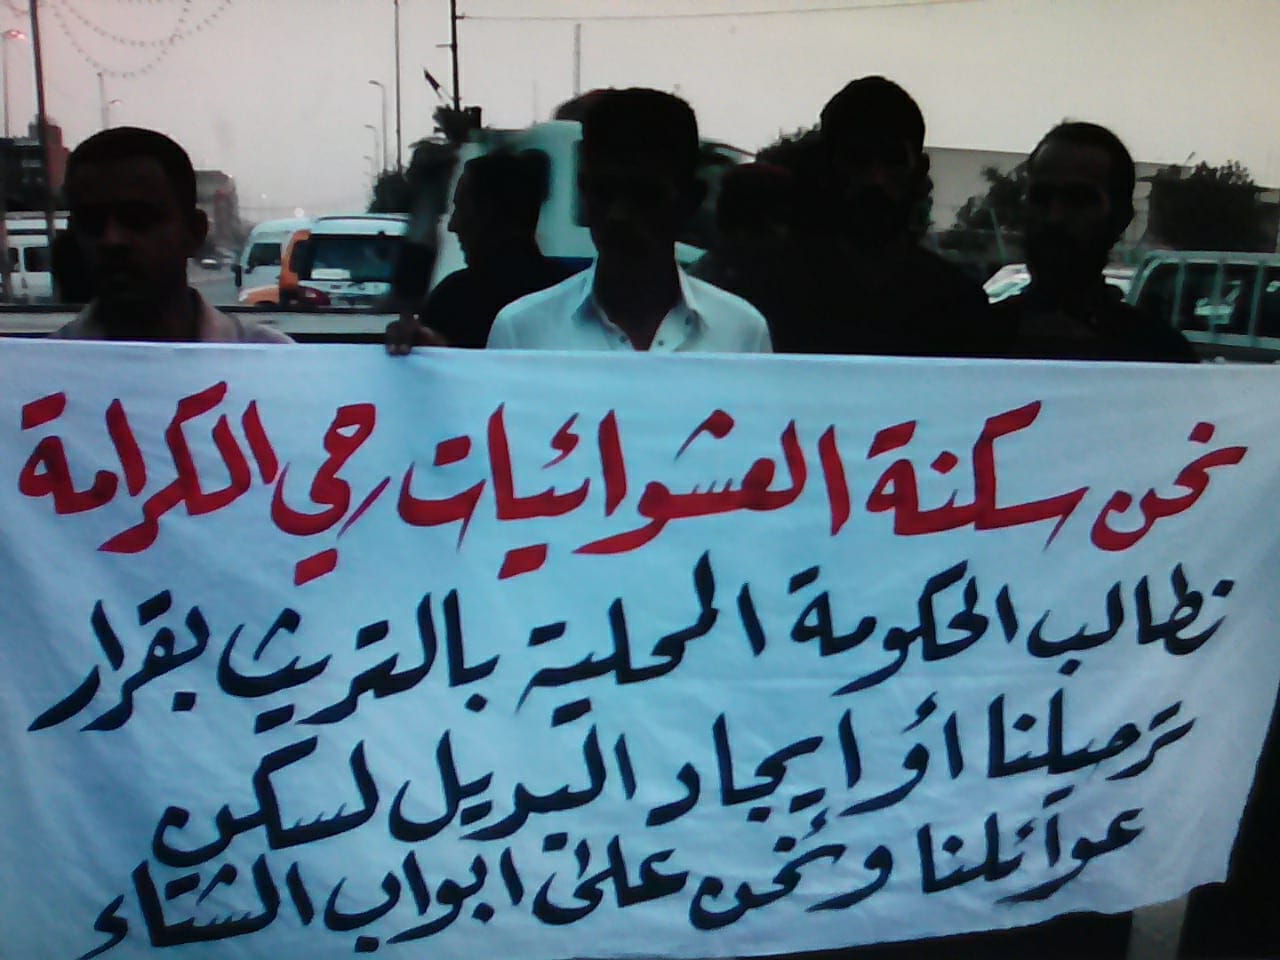 نحن سكنة العشوائيات حي الكرامة
نطالب الحكومة المحلية بالتريث بقرار
ترحيلنا أو ايجاد البديل لسكن
عوائلنا ونحن على ابواب الشتاء